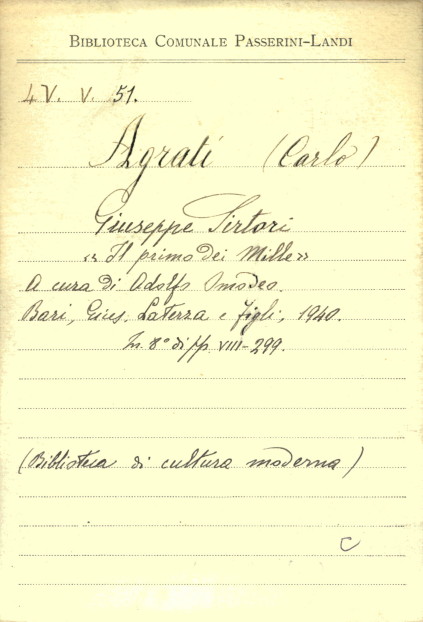 BIBLIOTECA COMUNALE PASSERINI-LANDI
4 V. V. 51.
Agrati (Carlo)
Giuseppe Sirtori
«Il primo dei Mille»
A cura di Adolfo Omodeo.
Bari, Gius. Laterza e figli, 1940.
In 8° di pp. VIII-299.
(Biblioteca di cultura moderna)
C